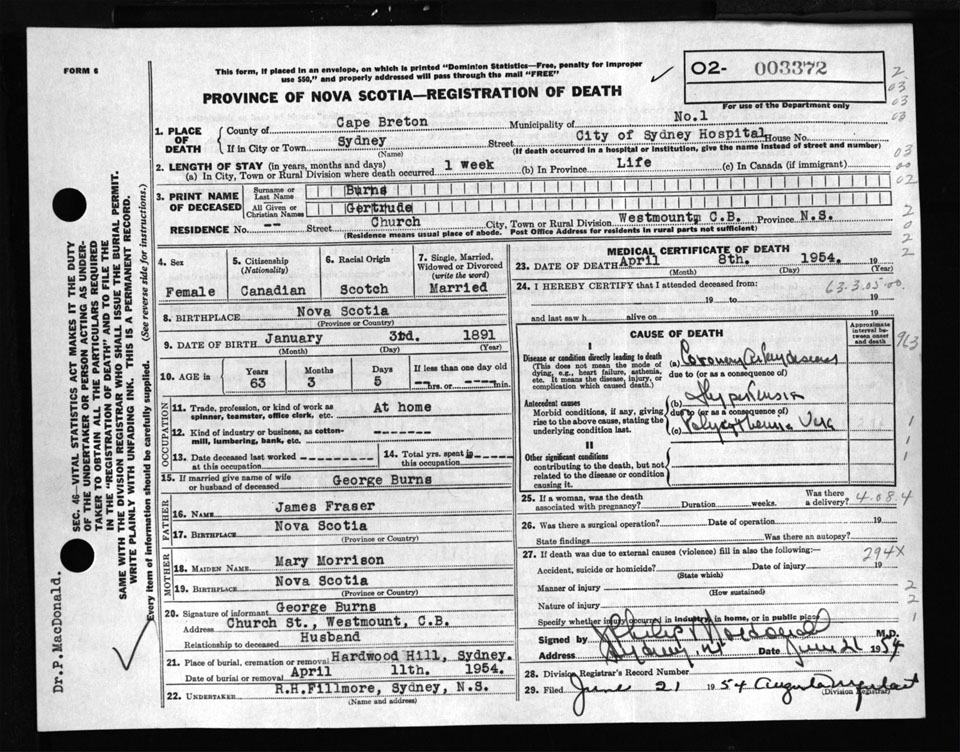 FORM 6
This form, if placed in an envelope, on which is printed "Dominion Statistics—Free, penalty for improper
use $50," and properly addressed will pass through the mail "FREE"
O2- 003372
For use of the Department only
PROVINCE OF NOVA SCOTIA—REGISTRATION OF DEATH
1. PLACE OF DEATH
County of Cape Breton Municipality of No.1
If in City or Town Sydney Street City of Sydney Hospital House No.
(Name) (If death occurred in a hospital or institution, give the name instead of street and number)
2. LENGTH OF STAY (in years, months and days)
(a) In City, Town or Rural Division where death occurred 1 Week (b) In Province Life (c) In Canada (if immigrant)
3. PRINT NAME OF DECEASED
Surname or Last Name Burns
All Given or Christian Names Gertrude
RESIDENCE No. -- Street Church City, Town or Rural Division Westmount, C.B. Province N.S.
(Residence means usual place of abode. Post Office Address for residents in rural parts not sufficient)
4. Sex Female
5. Citizenship (Nationality) Canadian
6. Racial Origin Scotch
7. Single, Married, Widowed or Divorced (write the word) Married
8. BIRTHPLACE Nova Scotia
(Province or Country)
9. DATE OF BIRTH January 3rd. 1891
(Month) (Day) (Year)
10. AGE is
Years 63 Months 3 Days 5 If less than one day old -- hrs. or -- min.
OCCUPATION
11. Trade, profession, or kind of work as spinner, teamster, office clerk, etc. At home
12. Kind of industry or business, as cotton-mill, lumbering, bank, etc. --------
13. Date deceased last worked at this occupation -------
14. Total yrs. spent in this occupation ------
15. If married give name of wife or husband of deceased George Burns
FATHER
16. NAME James Fraser
17. BIRTHPLACE Nova Scotia
(Province or Country)
MOTHER
18. MAIDEN NAME Mary Morrison
19. BIRTHPLACE Nova Scotia
(Province or Country)
20. Signature of informant George Burns
Address Church St., Westmount, C.B.
Relationship to deceased Husband
21. Place of burial, cremation or removal Hardwood Hill, Sydney.
Date of burial or removal April 11th. 1954.
22. UNDERTAKER R.H.Fillmore, Sydney, N.S.
(Name and address)
MEDICAL CERTIFICATE OF DEATH
23. DATE OF DEATH April 8th. 1954. 19
(Month) (Day) (Year)
24. I HEREBY CERTIFY that I attended deceased from:
63.3.05.00.
19 to 19
and last saw h alive on 19
CAUSE OF DEATH
Approximate interval between onset and death
I
Disease or condition directly leading to death
(This does not mean the mode of dying, e.g., heart failure, asthenia, etc. It means the disease, injury, or complication which caused death.)
(a) Coronary
due to (or as a consequence of)
Antecedent causes
Morbid conditions, if any, giving rise to the above cause, stating the underlying condition last.
(b) Hypertension
due to (or as a consequence of)
(c) Polycythemia Vera
II
Other significant conditions
contributing to the death, but not related to the disease or condition causing it.
25. If a woman, was the death associated with pregnancy? Duration weeks. Was there a delivery? 4.08.4
26. Was there a surgical operation? Date of operation 19
State findings Was there an autopsy?
27. If death was due to external causes (violence) fill in also the following:— 294X
Accident, suicide or homicide? Date of injury 19
(State which)
Manner of injury
(How sustained)
Nature of injury
Specify whether injury occurred in industry, in home, or in public place
Signed by Philip Macdonald M.D.
Address Sydney, NS Date June 21 1954
28. Division Registrar's Record Number
29. Filed June 21 1954 Augusta
(Division Registrar)
SEC. 46—VITAL STATISTICS ACT MAKES IT THE DUTY
OF THE UNDERTAKER OR PERSON ACTING AS UNDER-
TAKER TO OBTAIN ALL THE PARTICULARS REQUIRED
IN THE "REGISTRATION OF DEATH" AND TO FILE THE
SAME WITH THE DIVISION REGISTRAR WHO SHALL ISSUE THE BURIAL PERMIT.
WRITE PLAINLY WITH UNFADING INK. THIS IS A PERMANENT RECORD.
Every item of information should be carefully supplied. (See reverse side for instructions.)
Dr.P.MacDonald.
2
03
03
03
03
00
02
2
0
2
2
963
1
1
2
2
1